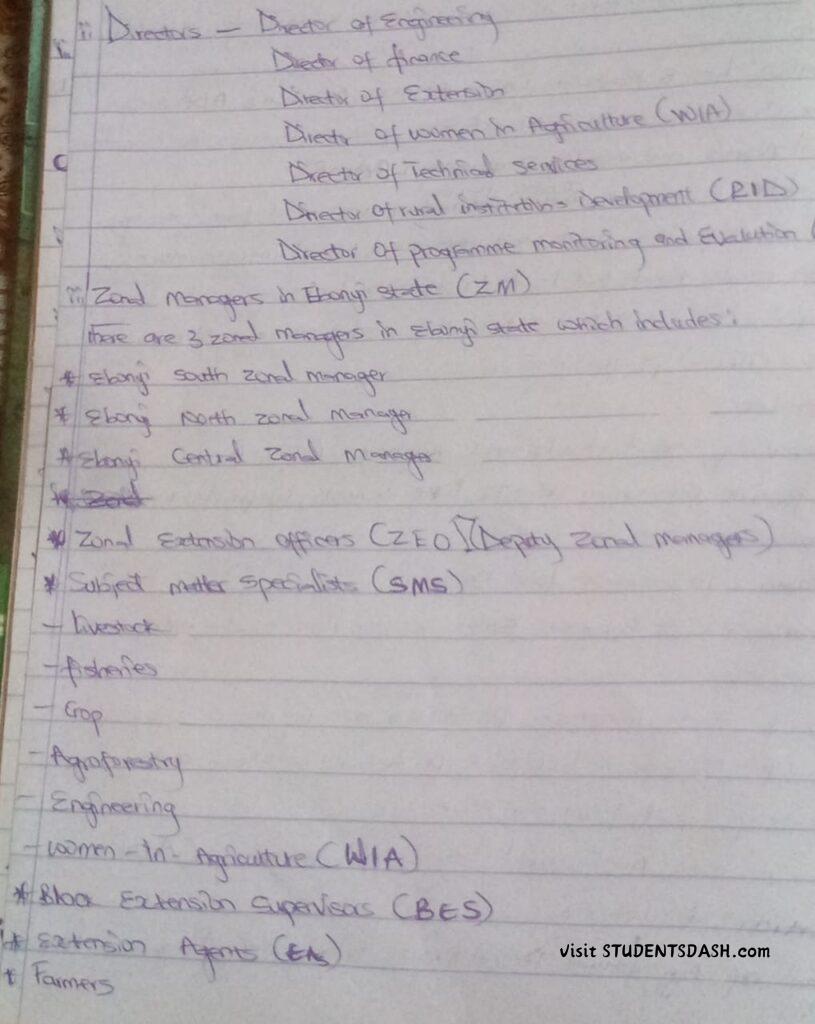 ii Directors – Director of Engineering
Director of finance
Director of Extension
Director of women in Agriculture (WIA)
Director of Technical services
Director of rural institution- Development (RID)
Director of programme monitoring and Evalution (
iii Zonal managers in Ebonyi state (ZM)
There are 3 zonal managers in Ebonyi state which includes:
* Ebonyi south zonal manager
* Ebonyi North zonal manager
* Ebonyi Central Zonal Manager
* Zonal
* Zonal Extension officers (ZEO) (Deputy zonal managers)
* Subject matter specialists (SMS)
- Livestock
- fisheries
- Crop
- Agroforestry
- Engineering
- women-in-Agriculture (WIA)
* Block Extension supervisors (BES)
* Extension Agents (EAs)
* Farmers
Visit STUDENTSDASH.com